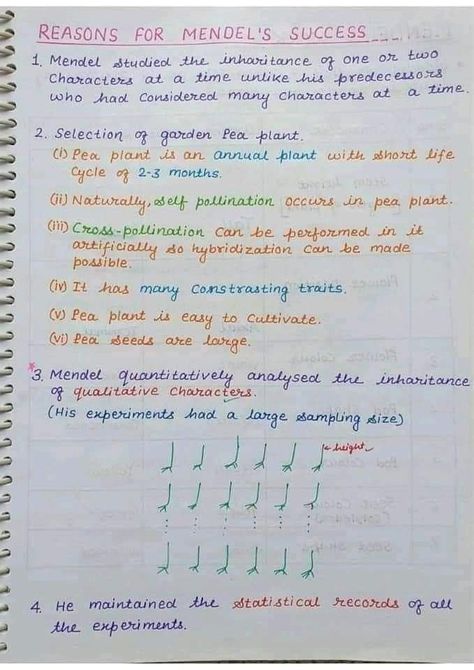 REASONS FOR MENDEL'S SUCCESS
1. Mendel studied the inharitance of one or two
characters at a time unlike his predecessors
who had considered many characters at a time.
2. Selection of garden Pea plant.
(i) Pea plant is an annual plant with short life
cycle of 2-3 months.
(ii) Naturally, self pollination occurs in pea plant.
(iii) Cross-pollination can be performed in it
artificially so hybridization can be made
possible.
(iv) It has many constrasting traits.
(v) Pea plant is easy to cultivate.
(vi) Pea seeds are large.
* 3. Mendel quantitatively analysed the inharitance
of qualitative characters.
(His experiments had a large sampling size)
height
4. He maintained the statistical records of all
the experiments.